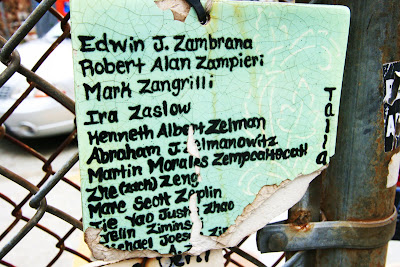 Edwin J. Zambrana
Robert Alan Zampieri
Mark Zangrilli
Ira Zaslow
Kenneth Albert Zelman
Abraham J. Zelmanowitz
Martin Morales Zempoaltecatl
Zhe (Zack) Zeng
Marc Scott Zeplin
Jie Yao Justin Zhao
Yelin Zimins
Michael Joese Zin
Talia